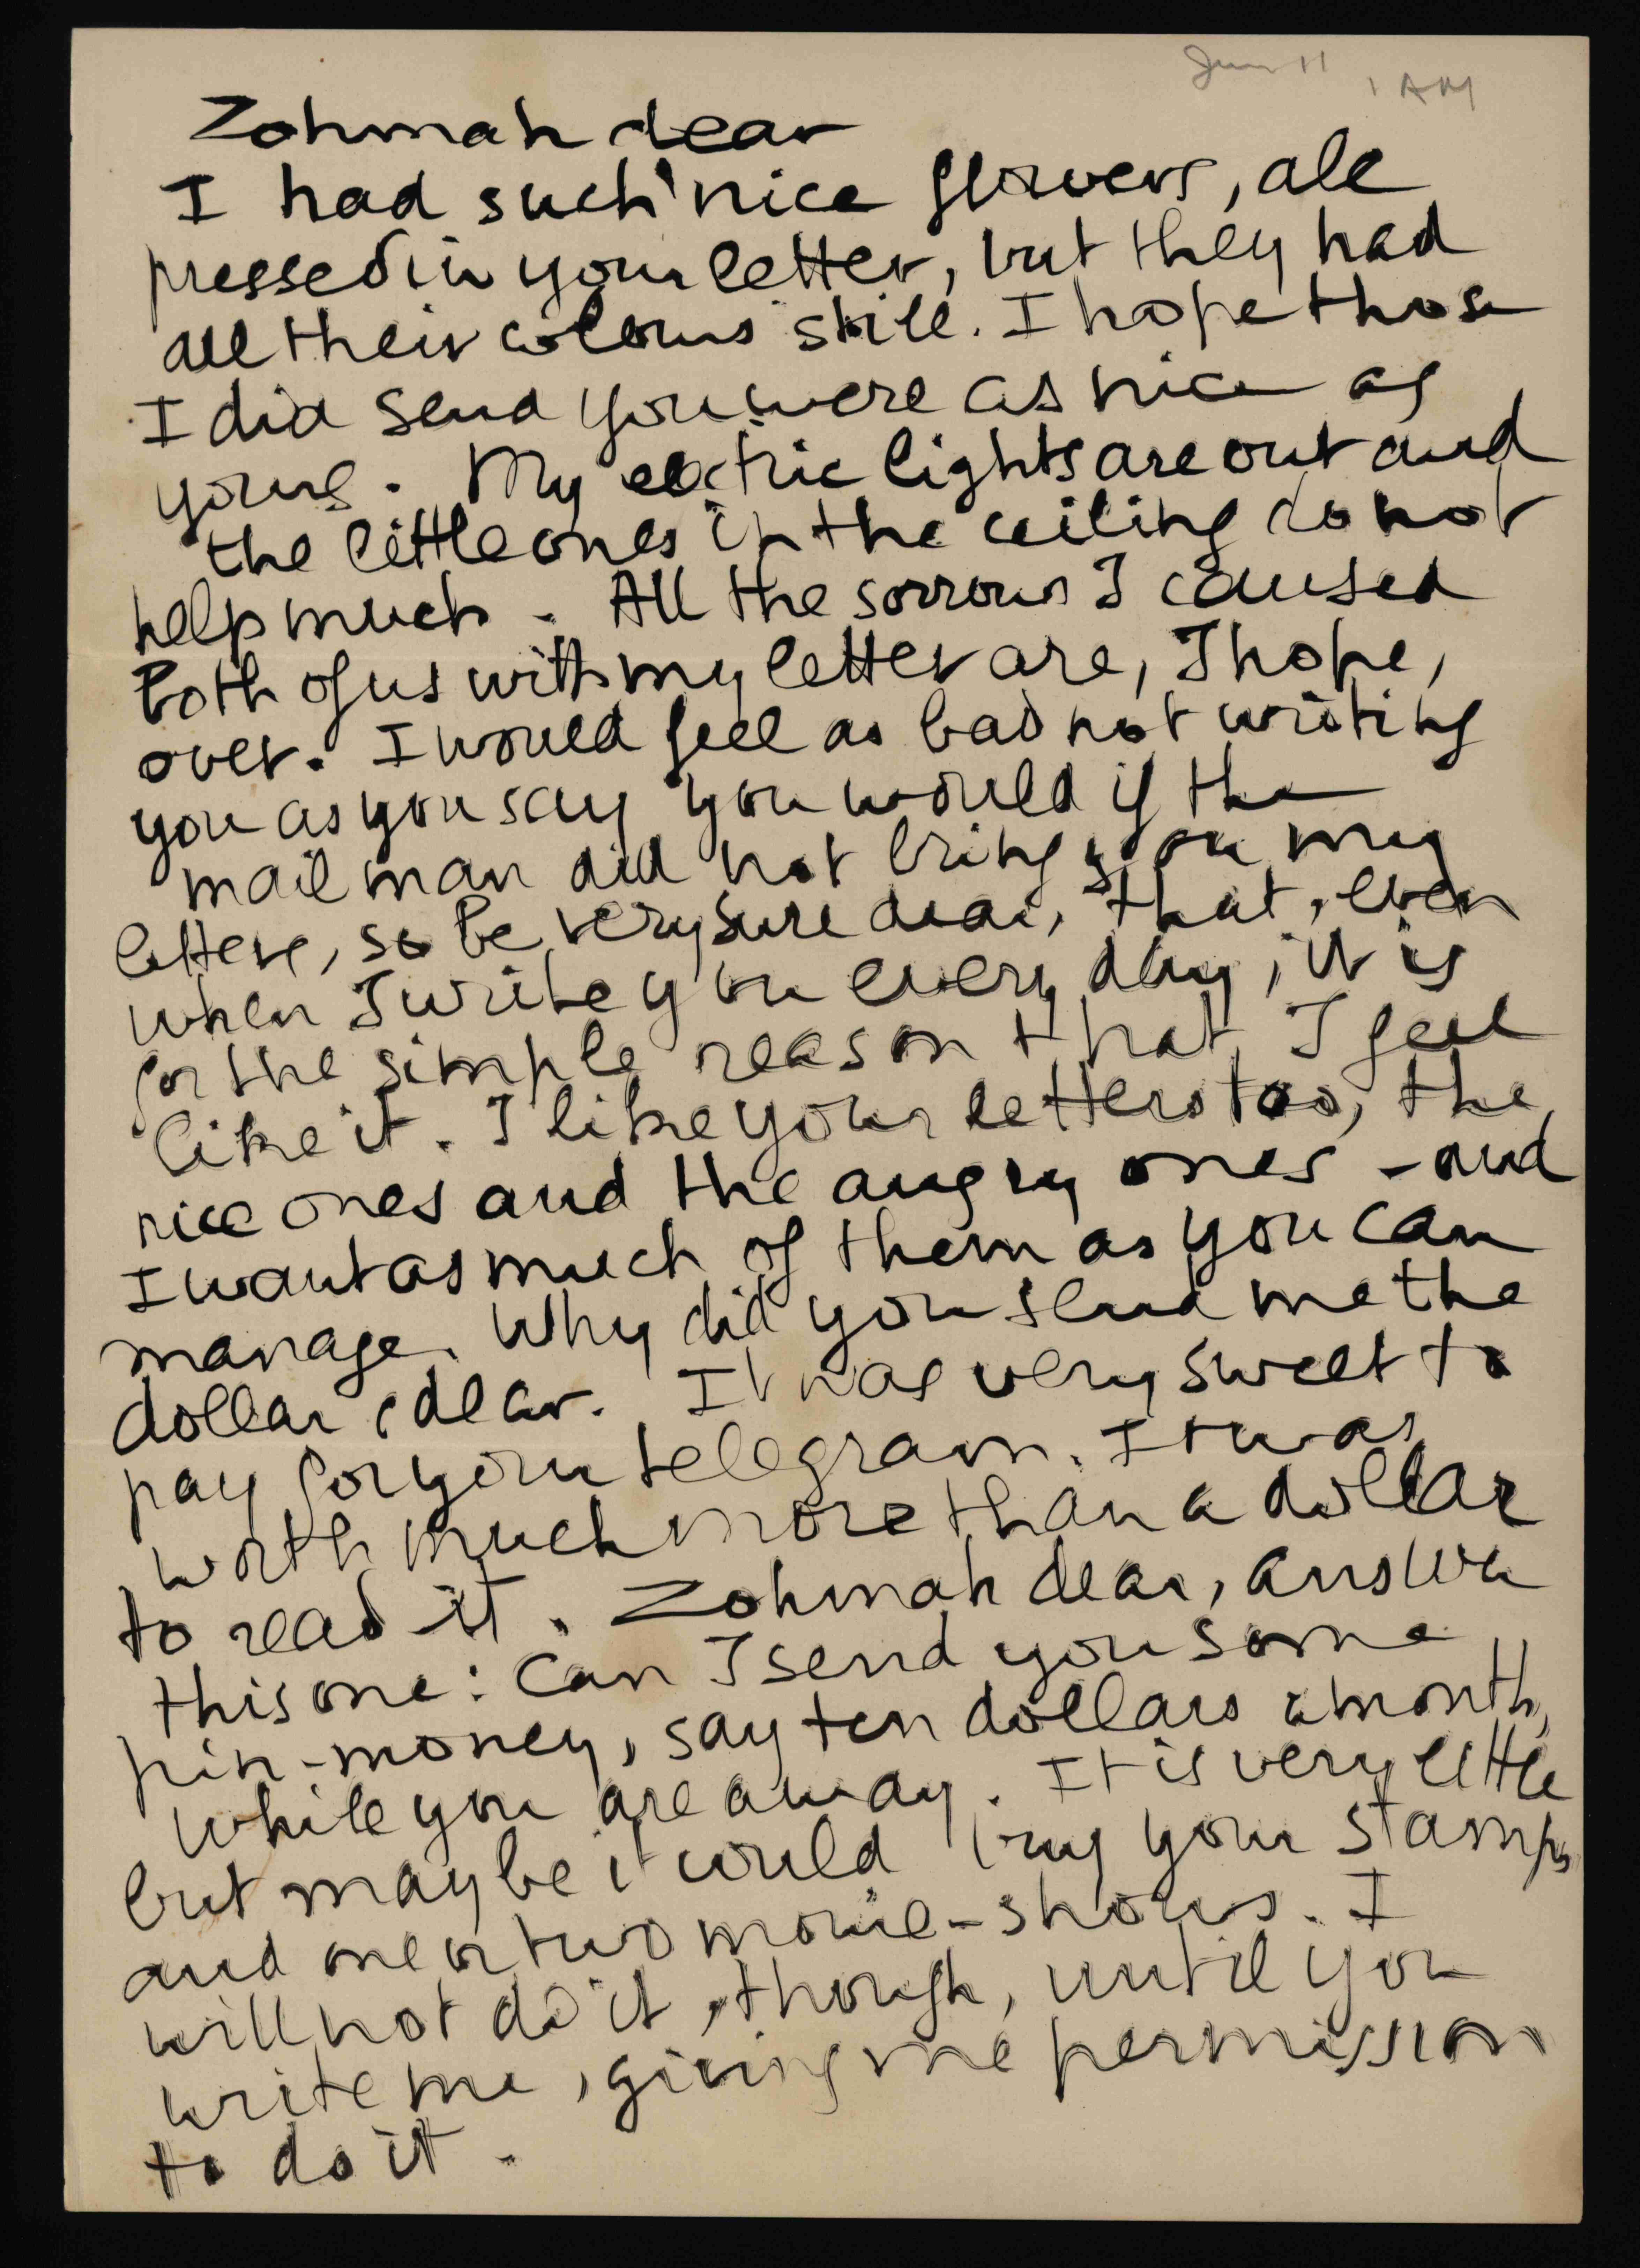 Jun 11 1 AM
Zohmah dear
I had such nice flowers, all
pressed in your letter, but they had
all their colours still. I hope those
I did send you were as nice as
yours. My eectric lights are out and
the little ones in the ceiling do not
help much. All the sorrows I caused
both of us with my letter are, I hope,
over. I would feel as bad not writing
you as you say you would if the
mail man did not bring you my
letters, so be very sure dear, that, even
when I write you every day, it is
for the simple reason that I feel
like it. I like your letters too, the
nice ones and the angry ones - and
I want as much of them as you can
manage. Why did you send me the
dollar, dear. It was very sweet to
pay for your telegram. It was
worth much more than a dollar
to read it. Zohmah dear, answer
this one: Can I send you some
pin-money, say ten dollars a month,
while you are away. It is very little
but maybe it would buy your stamps
and one or two movie-shows. I
will not do it, though, until you
write me, giving me permission
to do it.